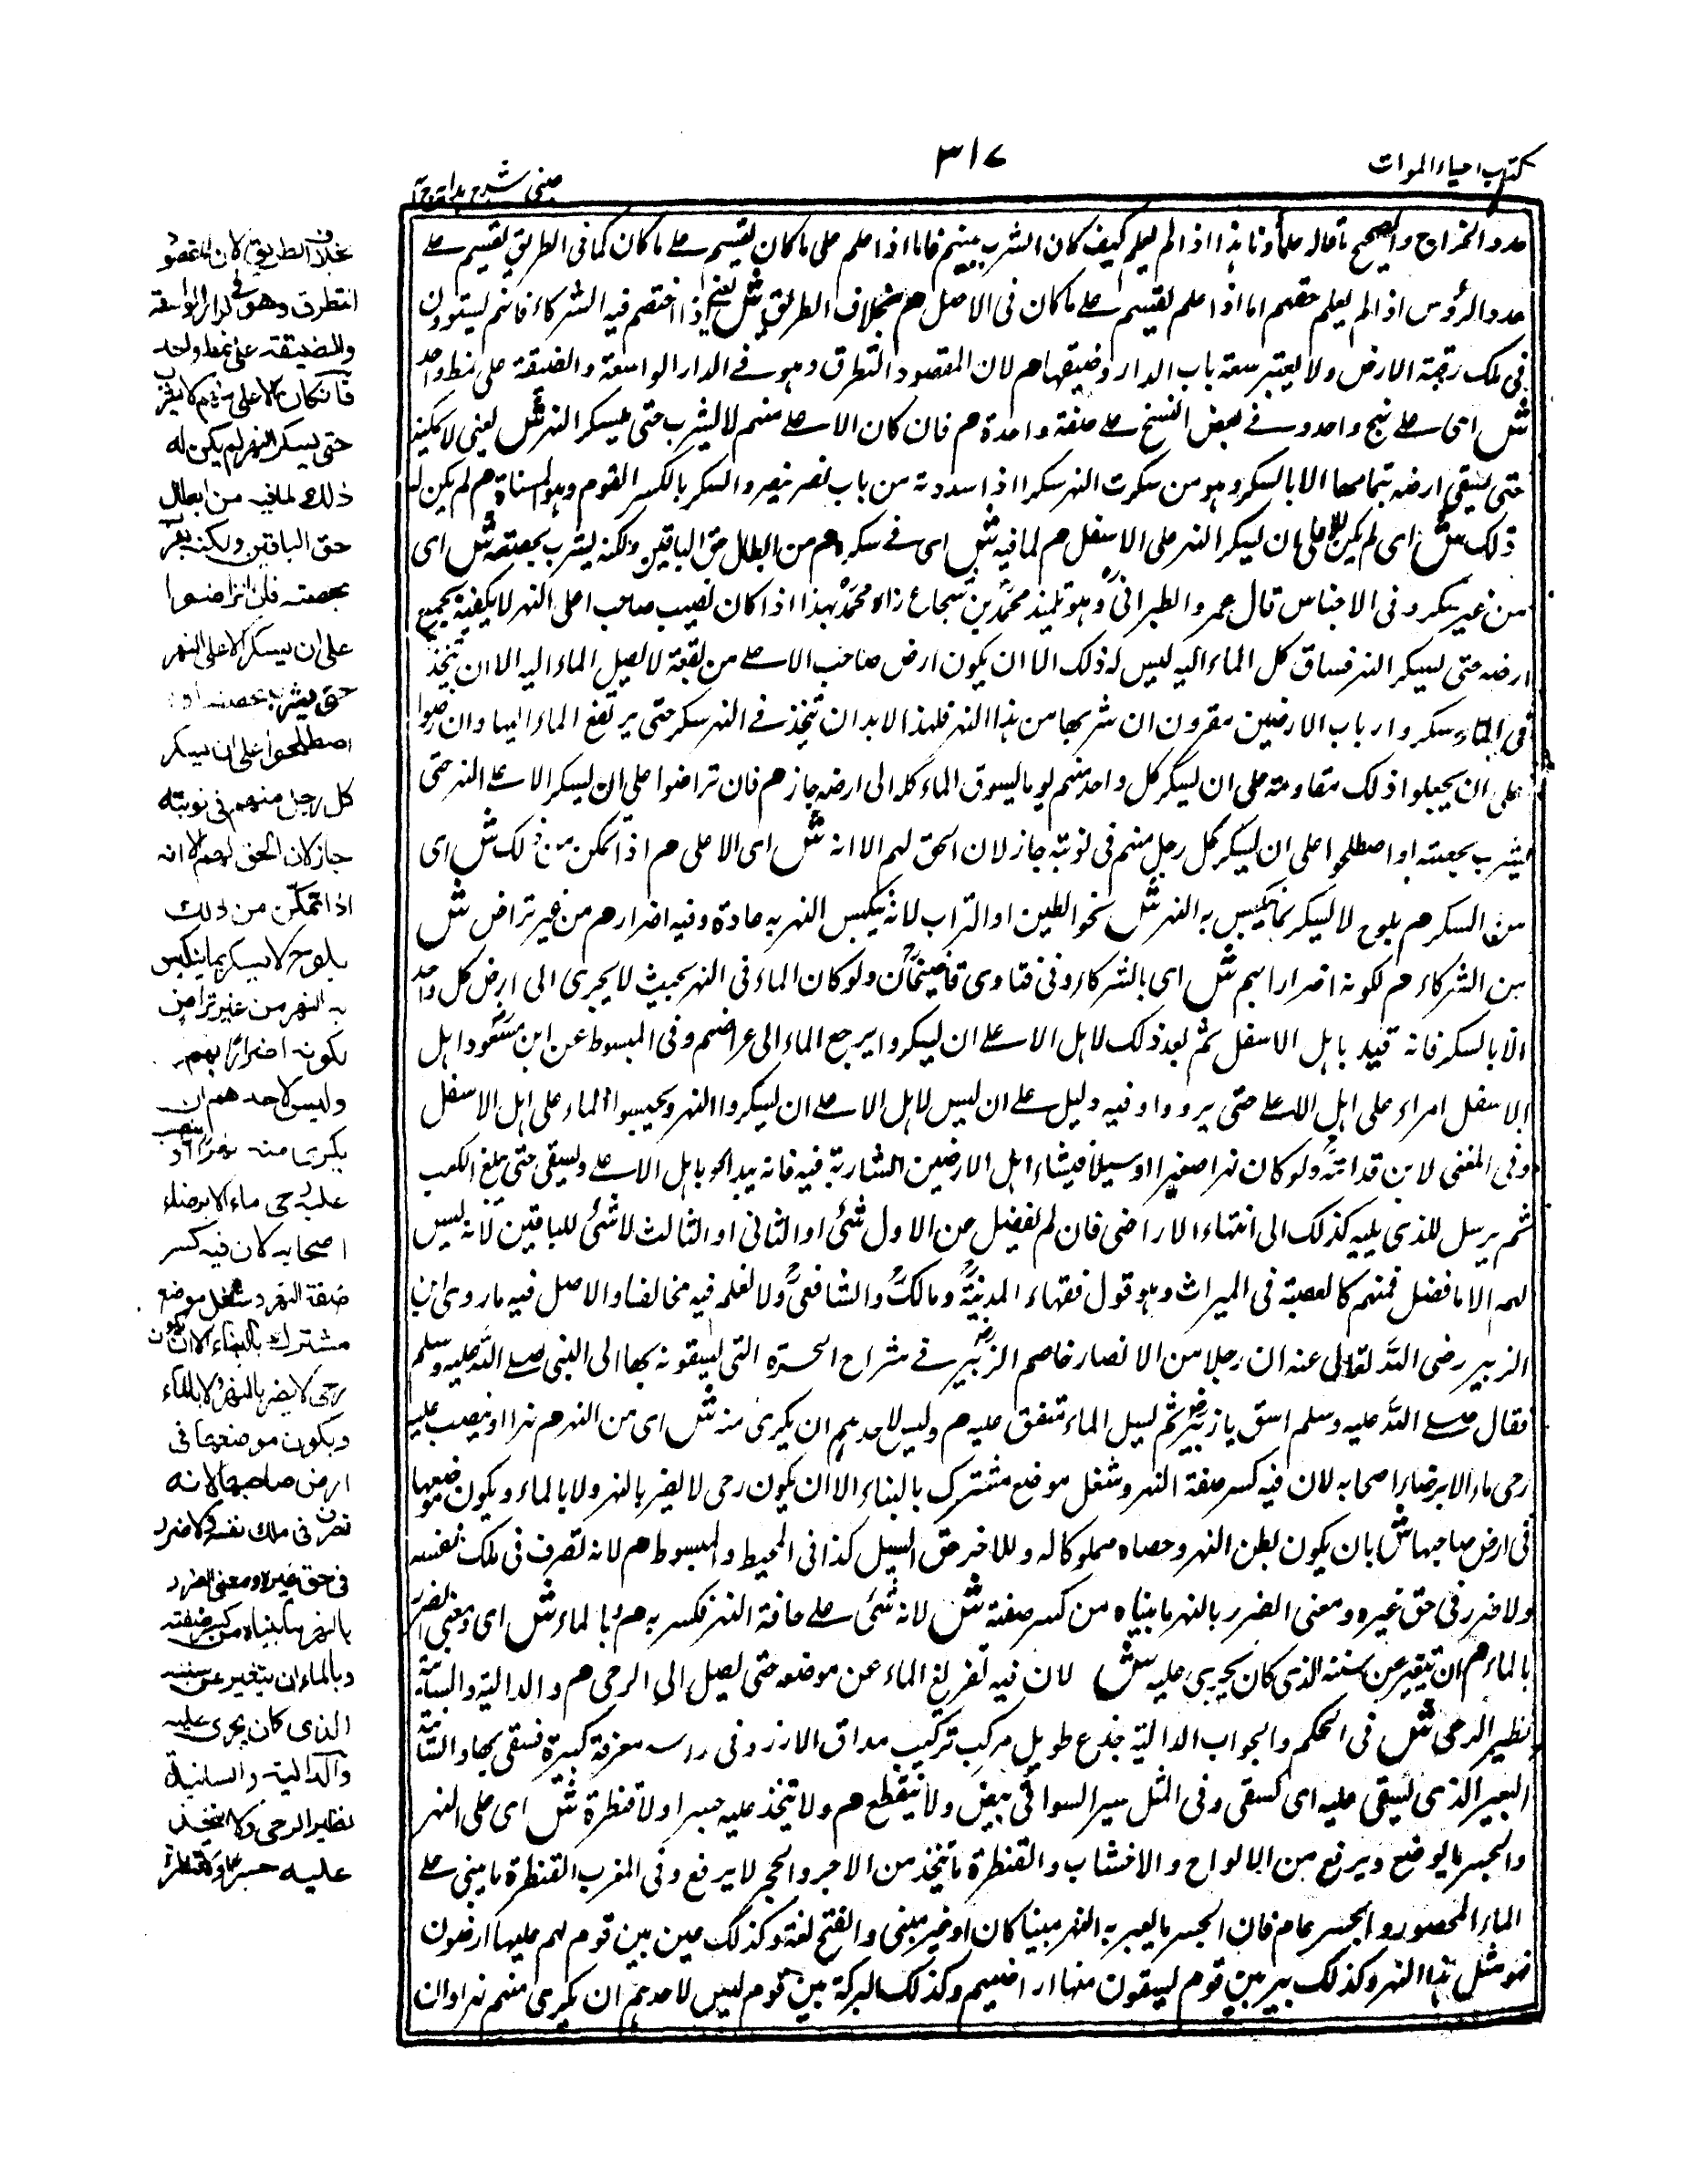 كتاب احياء الموات
٣١٧
عينى شرح هدايه ج ٤
عدد الخراج والصحيح ما قاله علماؤنا هذا اذا لم يعلم كيف كان الشرب بينهم فاما اذا علم على ما كان يقسم على ما كان كما فى الطريق يقسم على
عدد الرؤس اذا لم يعلم حقهم اما اذا علم يقسم على ما كان فى الاصل هم بخلاف الطريق ش يعنى اذا اختصم فيه الشركاء فانهم يستوون
فى ملك رقبة الارض ولا يعتبر سعة باب الدار وضيقها هم لان المقصود التطرق وهو فى الدار الواسعة والضيقة على نمط واحد
ش اى على نهج واحد وفى بعض النسخ على صفة واحدة هم فان كان الاعلى منهم لا يشرب حتى يسكر النهر ش يعنى لا يمكنه
حتى يسقى ارضه بتمامها الا بالسكر وهو من سكرت النهر سكرا اذا سددته من باب نصر ينصر والسكر بالكسر القوم وهو المسناة هم لم يكن له
ذلك ش اى لم يكن للاعلى ان يسكر النهر على الاسفل هم لما فيه ش اى فى سكره هم من ابطال حق الباقين ولكنه يشرب بحصته ش اى
من غير سكر وفى الاجناس قال عمرو الطبرانى وهو تلميذ محمد بن شجاع زاه محمد بهذا اذا كان نصيب صاحب اعلى النهر لا يكفيه بجميع
ارضه حتى يسكر النهر فساق كل الماء اليه ليس له ذلك الا ان يكون ارض صاحب الاعلى من بقعة لا يصل الماء اليه الا ان يتخذ
فى الماء سكر وارباب الارضين مقرون ان شربها من هذا النهر فلهذا لابد ان تتخذ فى النهر سكر حتى يرتفع الماء اليها وان رضوا
على ان يجعلوا ذلك مقاومة على ان يسكر كل واحد منهم يوما يسوق الماء كله الى ارضه جاز هم فان تراضوا على ان يسكر الاعلى النهر حتى
يشرب بحصته او اصطلحوا على ان يسكر كل رجل منهم فى نوبته جاز لان الحق لهم الا انه ش اى الاعلى هم اذا تمكن من ذلك ش اى
من السكر هم بلوح لا يسكر بما ينكبس به النهر ش نحو الطين او التراب لانه ينكبس النهر به عادة وفيه اضرار هم من غير تراض ش
بين الشركاء هم لكونه اضرارا بهم ش اى بالشركاء وفى فتاوى قاضيخان ولو كان الماء فى النهر بحيث لا يجرى الى ارض كل واحد
الا بالسكر فانه قيد باهل الاسفل ثم بعد ذلك لاهل الاعلى ان يسكروا يرجع الماء الى عراضهم وفى المبسوط عن ابن مسعود اهل
الاسفل امراء على اهل الاعلى حتى يرووا وفيه دليل على ان ليس لاهل الاعلى ان يسكروا النهر ويحبسوا الماء على اهل الاسفل
وفى المغنى لابن قدامة ولو كان نهرا صغيرا او سيلا فيشاء اهل الارضين الشاربة فيه فانه يبدا باهل الاعلى ويسقى حتى يبلغ الكعب
ثم يرسل للذى يليه كذلك الى انتهاء الاراضى فان لم يفضل من الاول شئ او الثانى او الثالث لا شئ للباقين لانه ليس
لهم الا ما فضل فمنهم كالعصبة فى الميراث وهو قول فقهاء المدنية ومالك والشافعى ولا نعلم فيه مخالفا والاصل فيه ما روى ابن
الزبير رضى الله تعالى عنه ان رجلا من الانصار خاصم الزبير فى شراج الحرة التى يسقونه بها الى النبى صلى الله عليه وسلم
فقال صلى الله عليه وسلم اسق يا زبير ثم يسيل الماء متفق عليه هم وليس لاحدهم ان يكرى منه ش اى من النهر هم نهرا او ينصب عليه
رحى ماء الا برضاء اصحابه لان فيه كسر صفة النهر وشغل موضع مشترك بالبناء الا ان يكون رحى لا يضر بالنهر ولا بالماء ويكون موضعها
فى ارض صاحبها ش بان يكون بطن النهر وحصاه مملوكا له وللاخر حق السيل كذا فى المحيط والمبسوط هم لانه تصرف فى ملك نفسه
ولا ضرر فى حق غيره ومعنى الضرر بالنهر ما بيناه من كسر صفة ش لانه شئ على حافة النهر فكسر به هم وبالماء ش اى ومعنى الضرر
بالماء هم ان يتغير عن سننه الذى كان يجرى عليه ش لان فيه تفريغ الماء عن موضعه حتى يصل الى الرحى هم والدالية والسانية
نظير الرحى ش فى الحكم والجواب الدالية جذع طويل مركب تركيب مداق الارز وفى راسه مغرفة كبيرة فسقى بها والسانية
البعير الذى يسقى عليه اى يستقى وفى المثل سير السوانى سفر لا ينقطع هم ولا يتخذ عليه جسرا ولا قنطرة ش اى على النهر
والجسر ما يوضع ويرفع من الالواح والاخشاب والقنطرة ما يتخذ من الاجر والحجر لا يرفع وفى المغرب القنطرة ما يبنى على
الماء المحصور والجسر عام فان الجسر ما يعبر به النهر مبنيا كان او غير مبنى والفتح لغة وكذلك عين بين قوم لهم عليها ارضون
فهو مثل هذا النهر وكذلك بير بين قوم يسقون منها اراضيهم وكذلك البركة بين قوم ليس لاحدهم ان يكرى منهم نهرا وان
بخلاف الطريق لان المقصود
التطرق وهو فى الدار الواسعة
والضيقة على نمط واحد
فان كان الاعلى منهم لا يشرب
حتى يسكر النهر لم يكن له
ذلك لما فيه من ابطال
حق الباقين ولكنه يشرب
بحصته فان تراضوا
على ان يسكر الاعلى النهر
حتى يشرب بحصته او
اصطلحوا على ان يسكر
كل رجل منهم فى نوبته
جاز لان الحق لهم الا انه
اذا تمكن من ذلك
بلوح لا يسكر بما ينكبس
به النهر من غير تراض
لكونه اضرارا بهم
وليس لاحدهم ان
يكرى منه نهرا او ينصب
عليه رحى ماء الا برضاء
اصحابه لان فيه كسر
ضفة النهر وشغل موضع
مشترك بالبناء الا ان يكون
رحى لا يضر بالنهر ولا بالماء
ويكون موضعها فى
ارض صاحبها لانه
تصرف فى ملك نفسه ولا ضرر
فى حق غيره ومعنى الضرر
بالنهر ما بيناه من كسر ضفته
وبالماء ان يتغير عن سننه
الذى كان يجرى عليه
والدالية والسانية
نظير الرحى ولا يتخذ
عليه جسرا ولا قنطرة